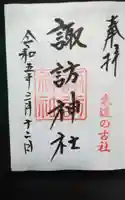 奉拝
東迎の古社
諏訪神社
令和五年二月十二日